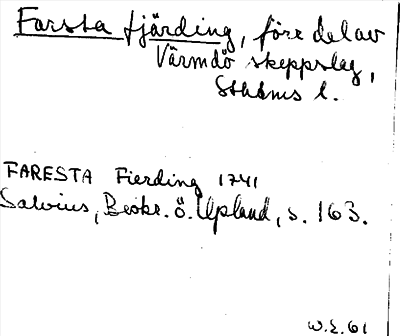 Farsta fjärding, före del av
Värmdö skeppslag,
Sthlms l.
FARESTA Fierding 1741
Salvius, Beskr. ö. Upland, s. 163.
W.E. 61